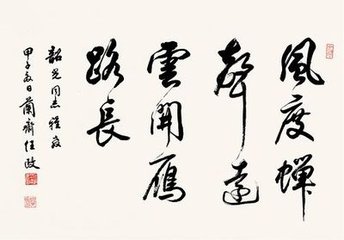 風度蟬
聲遠
雲開雁
路長
韶光同志雅存
甲子冬日蘭齋任政